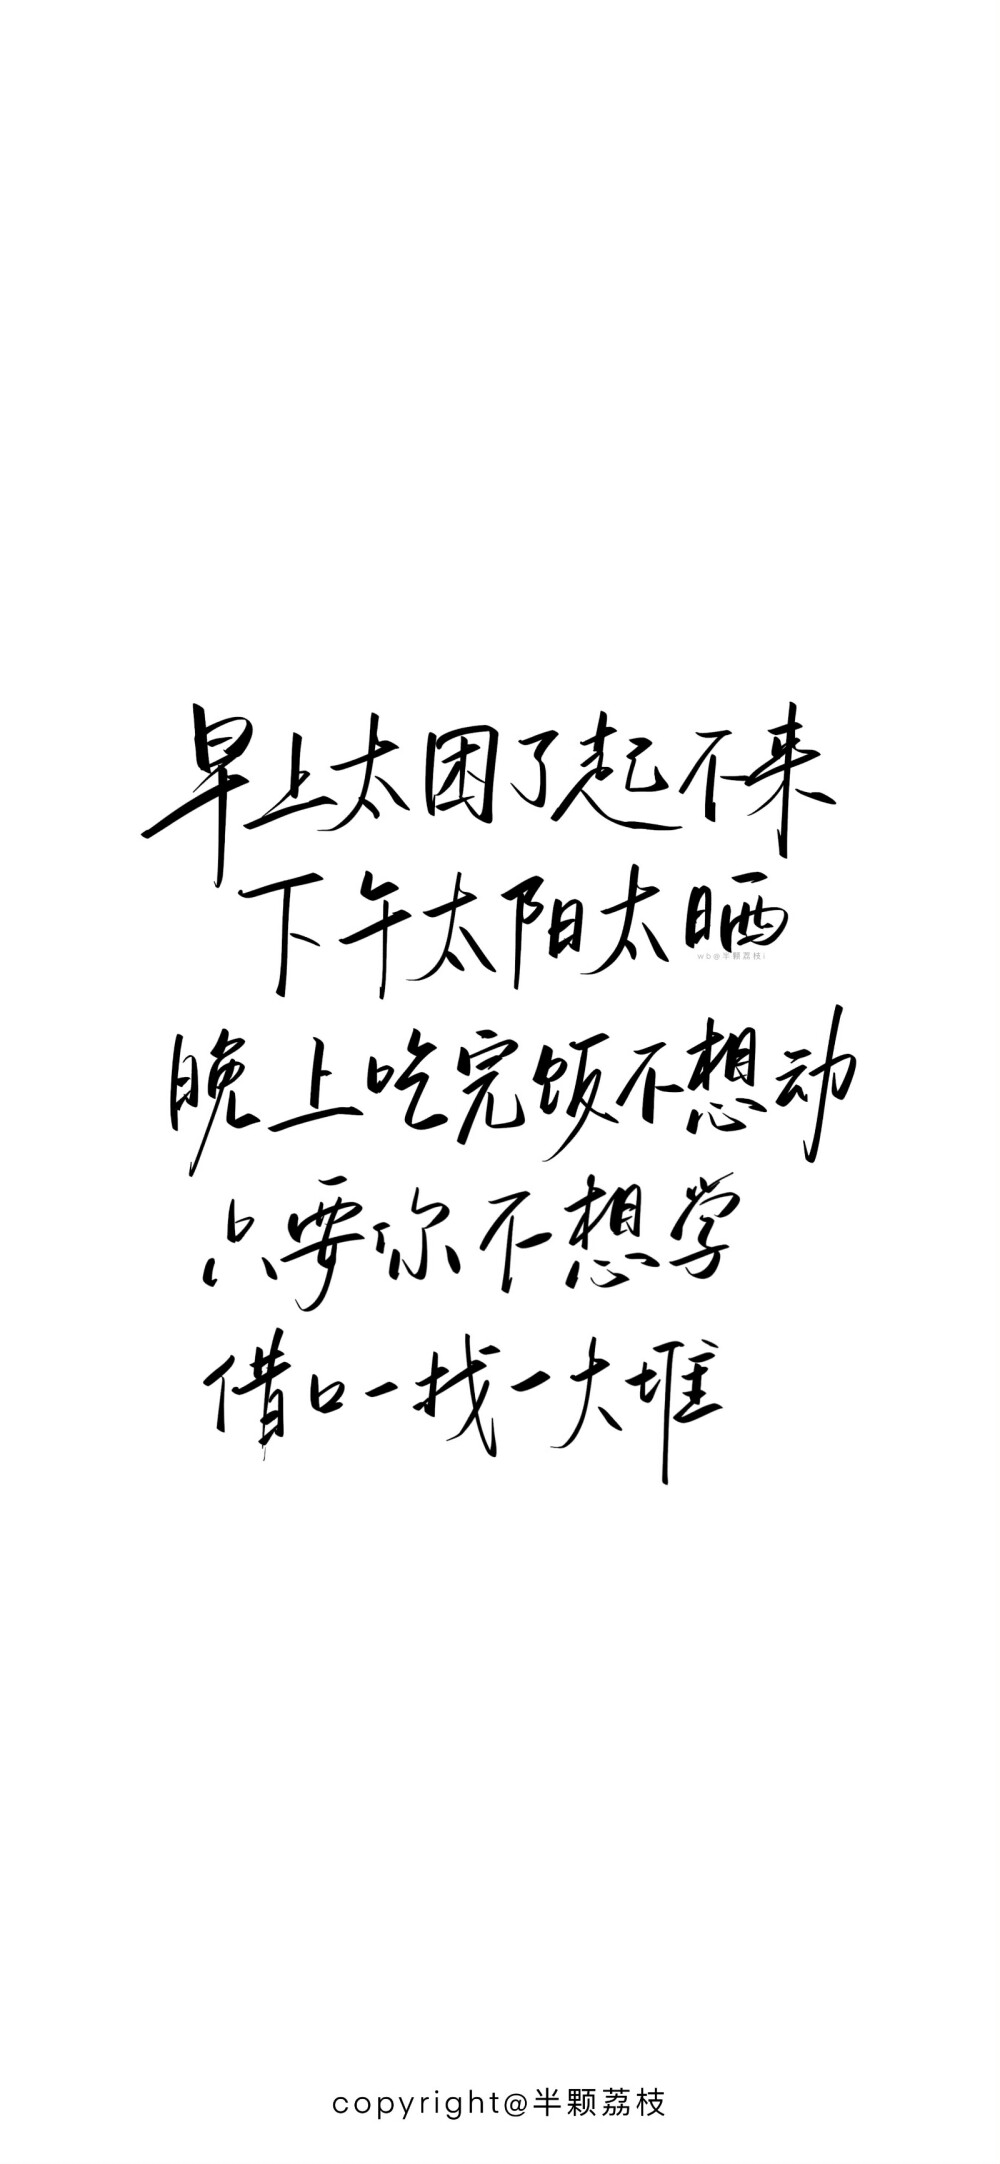 早上太困了起不来
下午太阳太晒
wb@半颗荔枝i
晚上吃完饭不想动
只要你不想学
借口一找一大堆
copyright@半颗荔枝